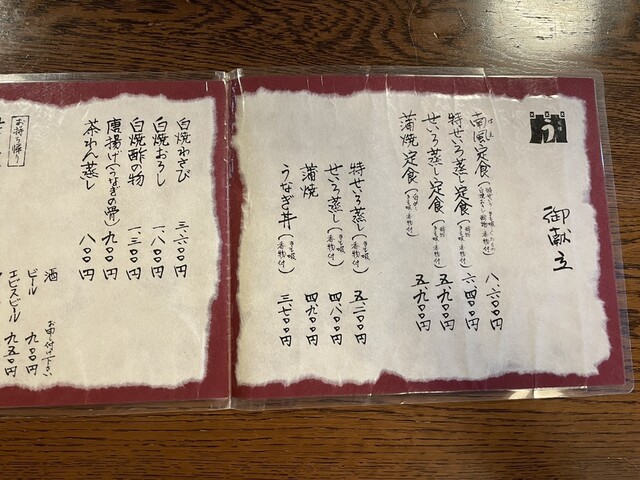 う
御献立
南風定食 八、六〇〇円
特せいろ蒸し定食 六、四〇〇円
せいろ蒸し定食 五、九〇〇円
蒲焼定食 五、九〇〇円
特せいろ蒸し(きも吸 香物付) 五、二〇〇円
せいろ蒸し(きも吸 香物付) 四、八〇〇円
蒲焼 四、九〇〇円
うなぎ丼(きも吸 香物付) 三、七〇〇円
白焼わさび 三、六〇〇円
白焼おろし 一、八〇〇円
白焼酢の物 一、三〇〇円
唐揚げ(うなぎの骨)九〇〇円
茶わん蒸し 八〇〇円
酒 お申し付け下さい
ビール 九〇〇円
エビスビール 九五〇円
お持ち帰り